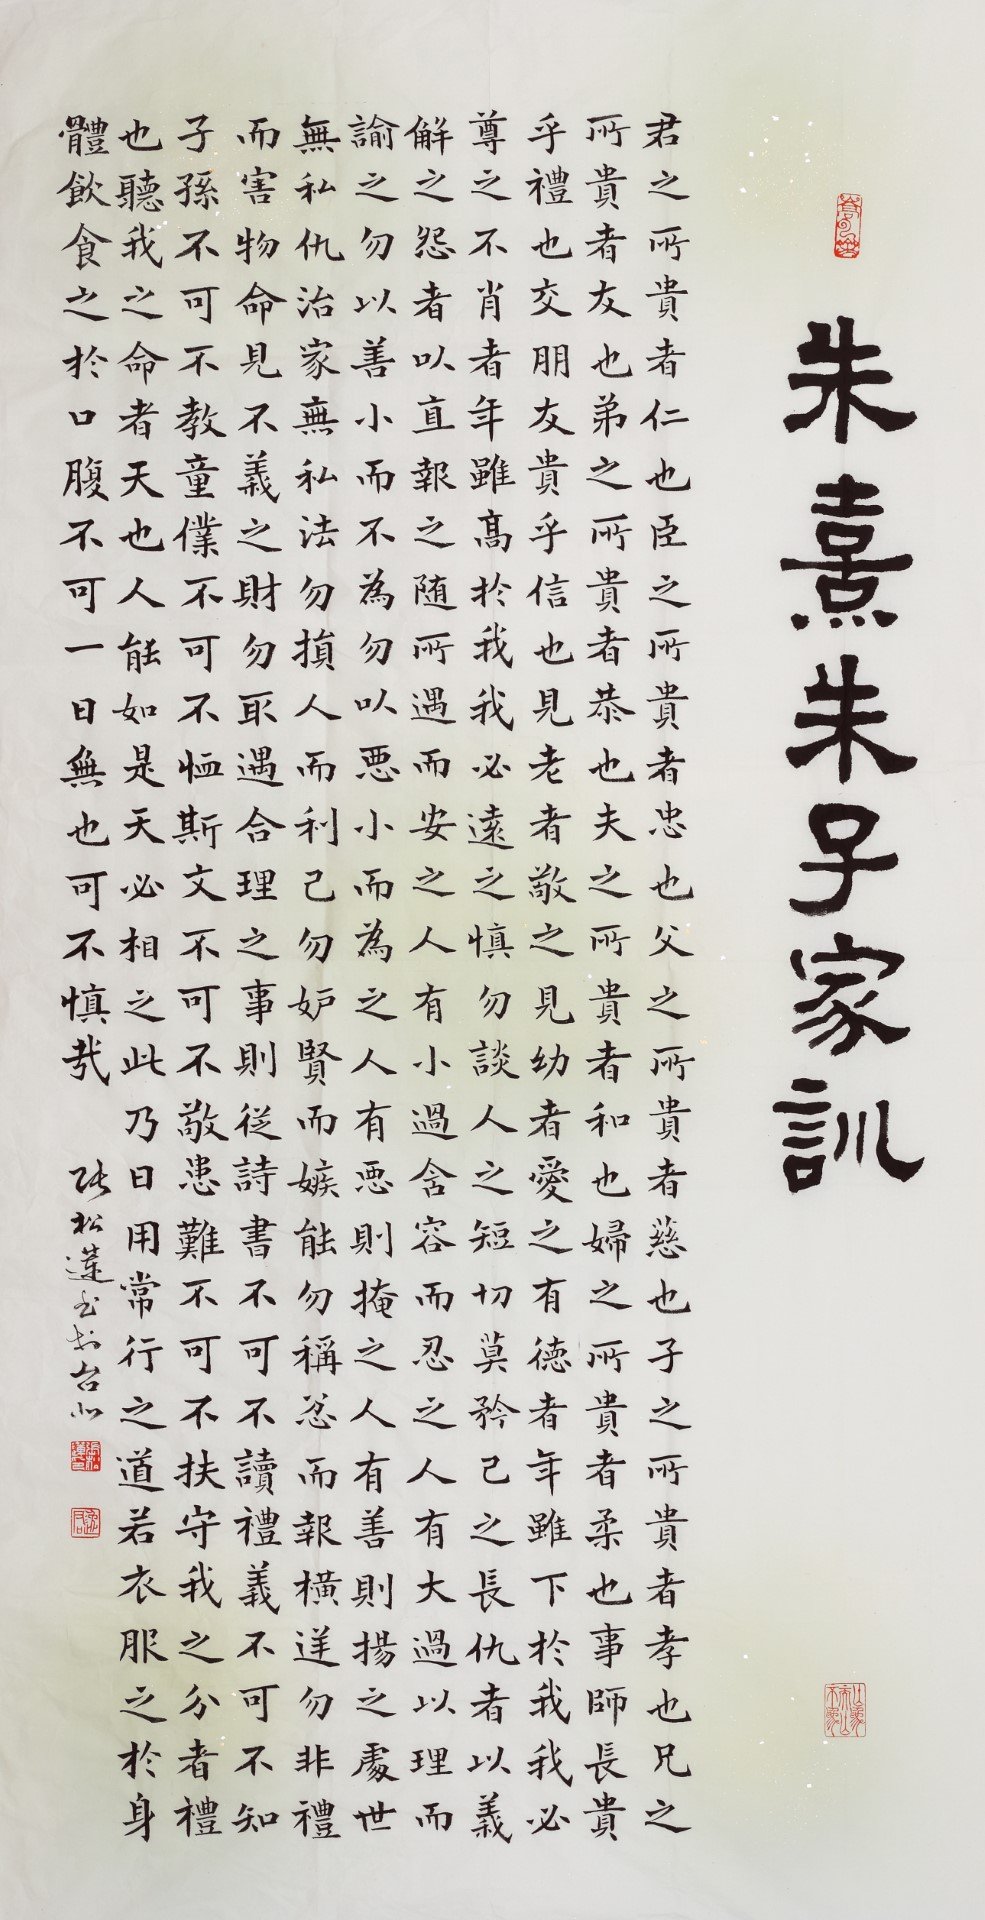 朱熹朱子家訓
君之所貴者仁也臣之所貴者忠也父之所貴者慈也子之所貴者孝也兄之
所貴者友也弟之所貴者恭也夫之所貴者和也婦之所貴者柔也事師長貴
乎禮也交朋友貴乎信也見老者敬之見幼者愛之有德者年雖下於我我必
尊之不肖者年雖高於我我必遠之慎勿談人之短切莫矜己之長仇者以義
解之怨者以直報之随所遇而安之人有小過含容而忍之人有大過以理而
諭之勿以善小而不為勿以惡小而為之人有惡則掩之人有善則揚之處世
無私仇治家無私法勿損人而利己勿妒賢而嫉能勿稱忿而報橫逆勿非禮
而害物命見不義之財勿取遇合理之事則從詩書不可不讀禮義不可不知
子孫不可不教童僕不可不恤斯文不可不敬患難不可不扶守我之分者禮
也聽我之命者天也人能如是天必相之此乃日用常行之道若衣服之於身
體飲食之於口腹不可一日無也可不慎哉
張松蓮书於台北